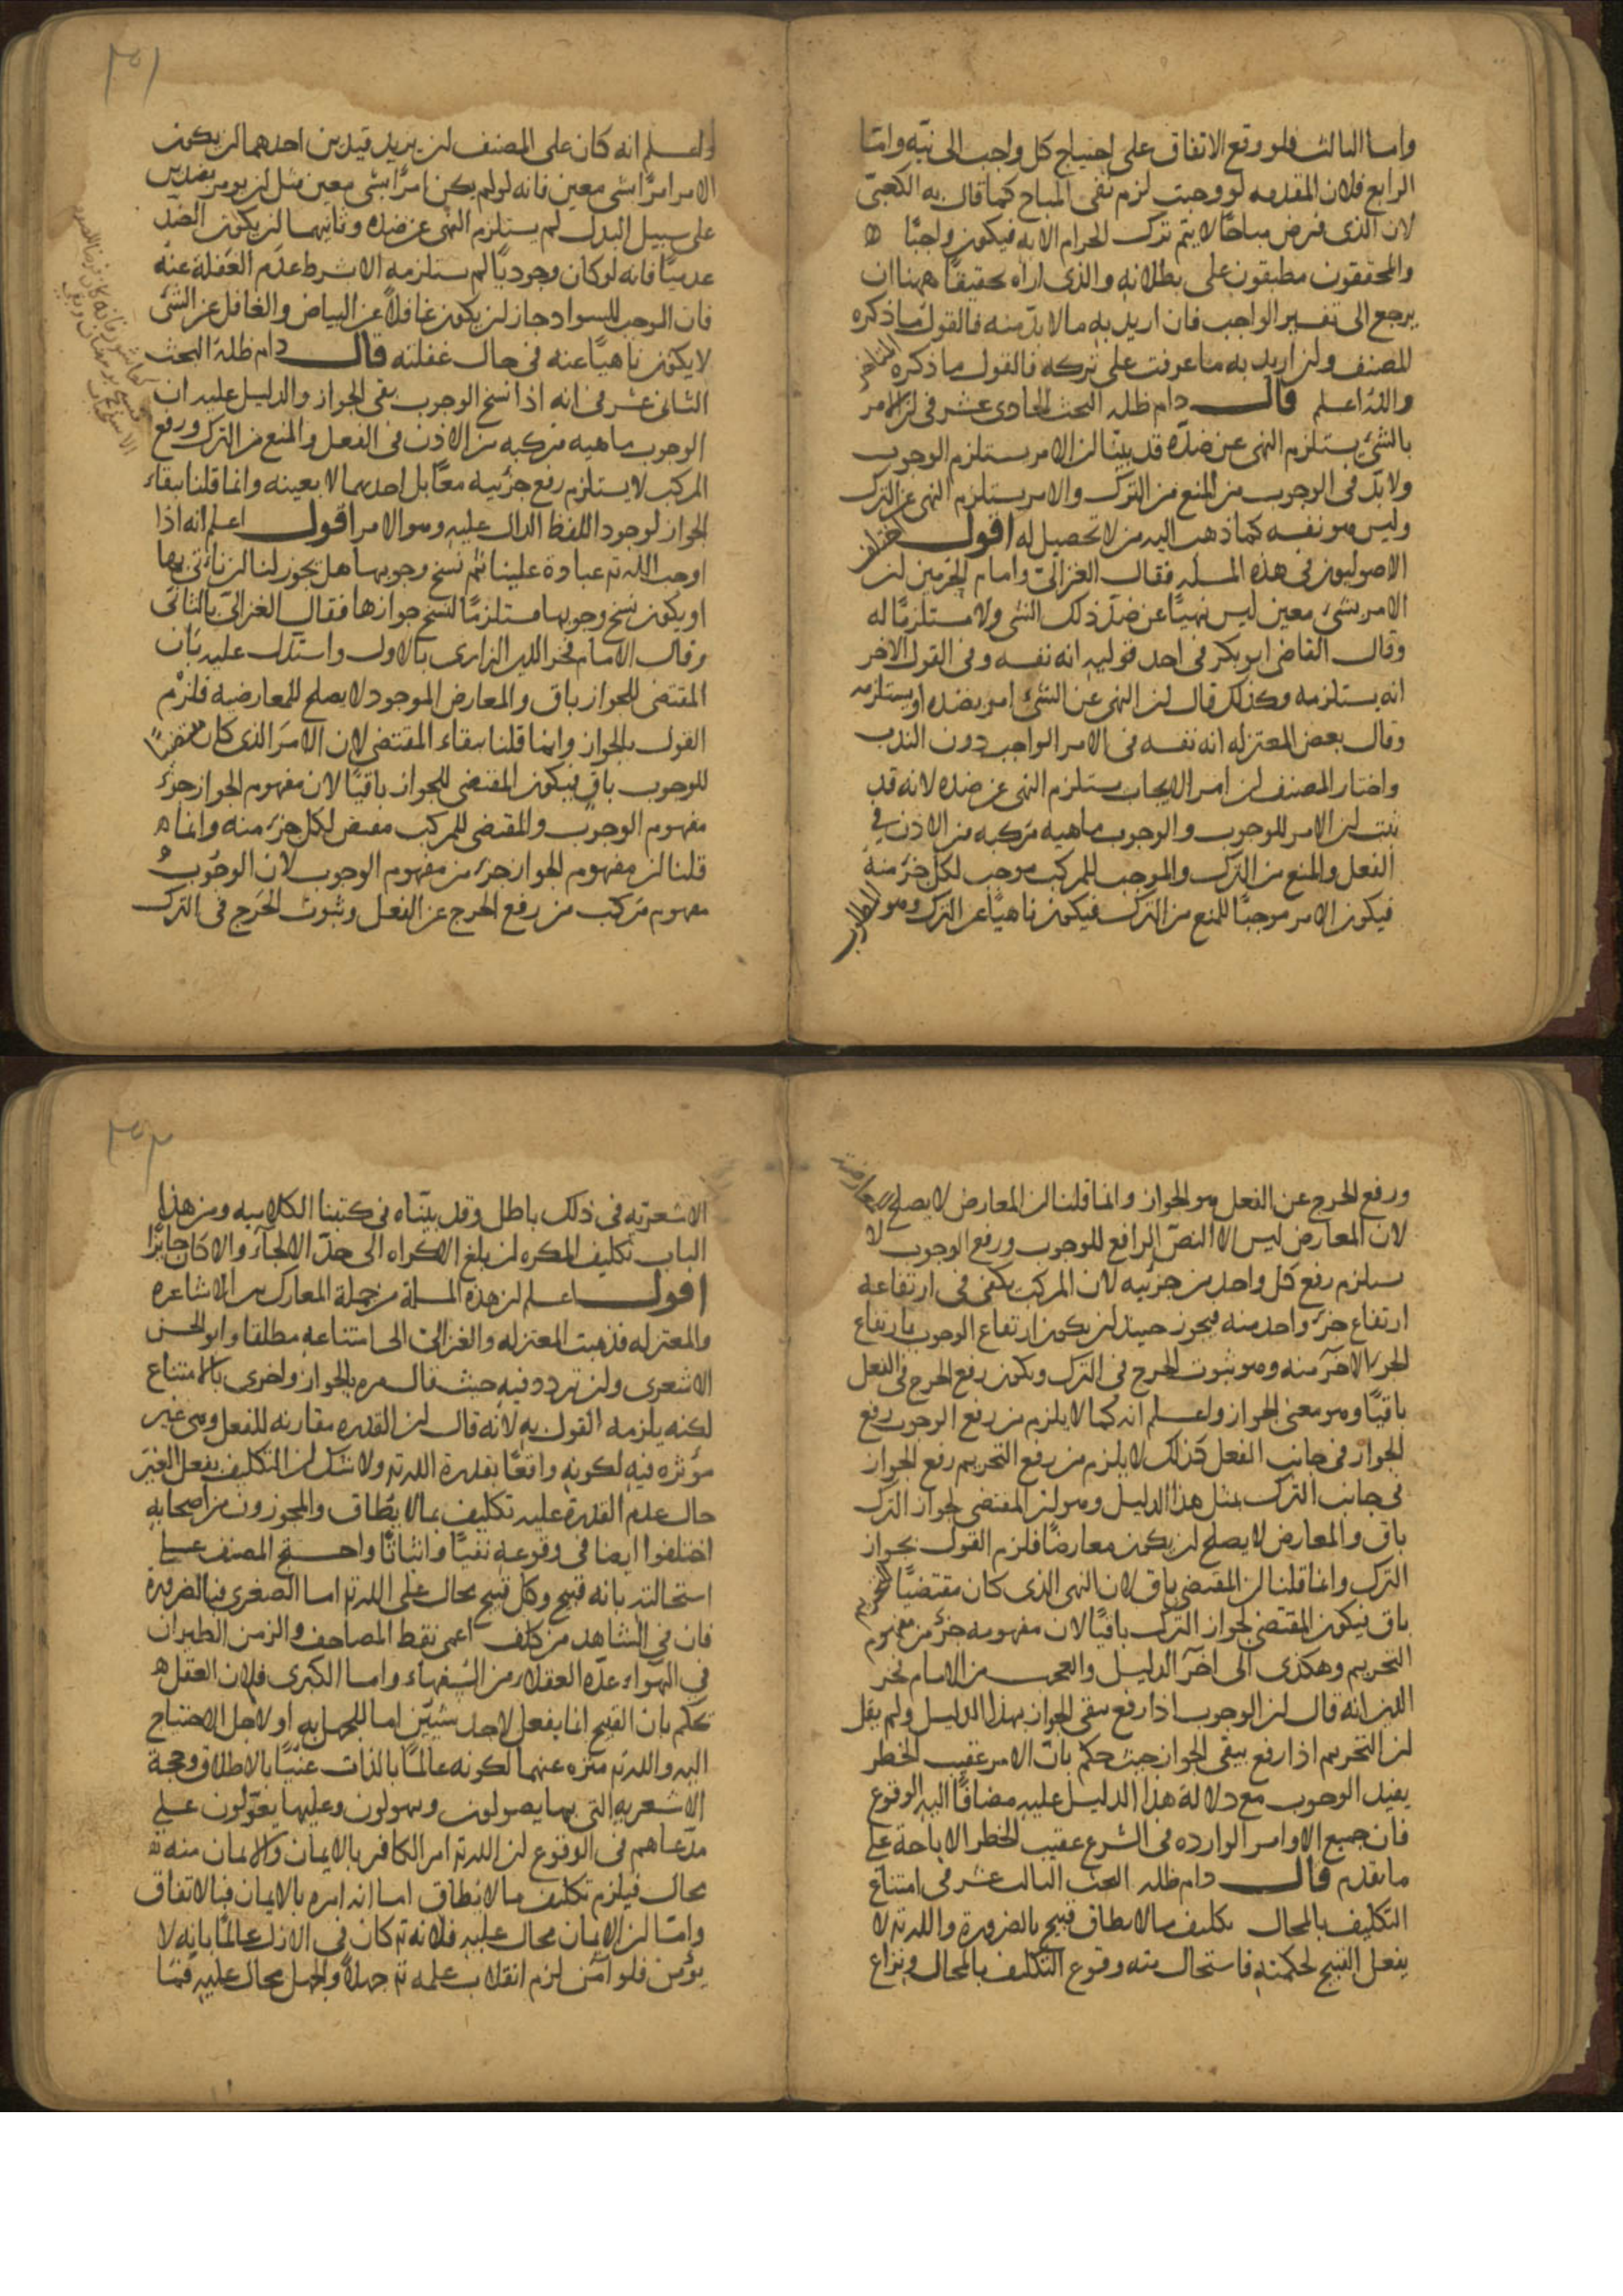 واما الثالث فلو وقع الاتفاق على احتياج كل واجب الى نيّة وامّا
الرابع فلان المقدمه لو وجبت لزم نفى المباح كما قال به الكعبىّ
لان الذى فرض مباحًا لا يتم ترك الحرام الا به فيكون واجبًا ه
والمحققون مطبقون على بطلانه والذى اراه تحقيقًا ههنا ان
يرجع الى تفسير الواجب فان اريد به ما لا بدّ منه فالقول ما ذكره
المصنف وان اريد به ما عوقب على تركه فالقول ما ذكره
والله اعلم قال دام ظله البحث الحادى عشر فى ان الامر
بالشئ يستلزم النهى عن ضدّه قد بينّا ان الامر يستلزم الوجوب
ولا بدّ فى الوجوب من المنع من الترك والامر يستلزم النهى عن الترك
وليس هو نفسه كما ذهب اليه من لا تحصيل له اقول اختلف
الاصوليون فى هذه المسله فقال الغزالى وامام الحرمين ان
الامر بشئ معين ليس نهيًا عن ضدّ ذلك الشى ولا مستلزمًا له
وقال القاضى ابو بكر فى احد قوليه انه نفسه وفى القول الاخر
انه يستلزمه وكذلك قال ان النهى عن الشئ امر بضده او يستلزمه
وقال بعض المعتزله انه نفسه فى الامر الواجب دون الندب
واختار المصنف ان امر الايجاب يستلزم النهى عن ضده لانه قد
ثبت ان الامر للوجوب والوجوب ماهيه مركبه من الاذن فى
الفعل والمنع من الترك والموجب للمركب موجب لكل جزء منه
فيكون الامر موجبًا للمنع من الترك فيكون ناهيًا عن الترك وهو المطلوب
٣٥١
واعلم انه كان على المصنف ان يزيد قيدين احدهما ان يكون
الامر امرًا بشى معين فانه لو لم يكن امرًا بشى معين مثل ان يومر بضدين
على سبيل البدل لم يستلزم النهى عن ضده وثانيهما ان يكون الضدّ
عدميًا فانه لو كان وجوديًا لم يستلزمه الا بشرط عدم الغفلة عنه
فان الموجب للسواد جاز ان يكون غافلاً عن البياض والغافل عن الشئ
لا يكون ناهيًا عنه فى حال غفلته قال دام ظله البحث
الثانى عشر فى انه اذا نسخ الوجوب بقى الجواز والدليل عليه ان
الوجوب ماهيه مركبه من الاذن فى الفعل والمنع من الترك ورفع
المركب لا يستلزم رفع جزئيه معًا بل احدهما لا بعينه وانما قلنا ببقاء
الجواز لوجود اللفظ الدال عليه وهو الامر اقول اعلم انه اذا
اوجب الله تع عبادة علينا ثم نسخ وجوبها هل يجوز لنا ان ناتى بها
او يكون نسخ وجوبها مستلزمًا لنسخ جوازها فقال الغزالى بالثانى
وقال الامام فخر الدين الرازى بالاول واستدل عليه بان
المقتضى للجواز باق والمعارض الموجود لا يصلح للمعارضه فلزم
القول بالجواز وانما قلنا ببقاء المقتضى لان الامر الذى كان مقتضيًا
للوجوب باق فيكون المقتضى للجواز باقيًا لان مفهوم الجواز جزء
مفهوم الوجوب والمقتضى للمركب مقتض لكل جزء منه وانما ه
قلنا ان مفهوم الجواز جزء من مفهوم الوجوب لان الوجوب
مفهوم مركب من رفع الحرج عن الفعل وثبوت الحرج فى الترك
ورفع الحرج عن الفعل هو الجواز وانما قلنا ان المعارض لا يصلح للمعارضة
لان المعارض ليس الا النصّ الرافع للوجوب ورفع الوجوب لا
يستلزم رفع كل واحد من جزئيه لان المركب يكفى فى ارتفاعه
ارتفاع جزء واحد منه فيجوز حينئذ ان يكون ارتفاع الوجوب بارتفاع
الجزء الاخر منه وهو ثبوت الحرج فى الترك ويكون رفع الحرج فى الفعل
باقيًا وهو معنى الجواز واعلم انه كما لا يلزم من رفع الوجوب رفع
الجواز فى جانب الفعل كذلك لا يلزم من رفع التحريم رفع الجواز
فى جانب الترك بمثل هذا الدليل وهو ان المقتضى لجواز الترك
باق والمعارض لا يصلح ان يكون معارضًا فلزم القول بجواز
الترك وانما قلنا ان المقتضى باق لان النهى الذى كان مقتضيًا للتحريم
باق فيكون المقتضى لجواز الترك باقيًا لان مفهومه جزء من مفهوم
التحريم وهكذى الى اخر الدليل والعجب من الامام فخر
الدين انه قال ان الوجوب اذا رفع بقى الجواز بهذا الدليل ولم يقل
ان التحريم اذا رفع يبقى الجواز حيث حكم بان الامر عقيب الحظر
يفيد الوجوب مع دلالة هذا الدليل عليه مضافًا اليه الوقوع
فان جميع الاوامر الوارده فى الشرع عقيب الحظر الاباحة على
ما تقدم قال دام ظله البحث الثالث عشر فى امتناع
التكليف بالمحال تكليف ما لا يطاق قبيح بالضرورة والله تع لا
يفعل القبيح لحكمته فاستحال منه وقوع التكليف بالمحال ونزاع
٣٥٢
الاشعريّه فى ذلك باطل وقد بينّاه فى كتبنا الكلاميه ومن هذا
الباب تكليف المكره ان بلغ الاكراه الى حدّ الالجآء والا كان جايزًا
اقول اعلم ان هذه المسلة من جملة المعارك بين الاشاعره
والمعتزله فذهبت المعتزله والغزالى الى امتناعه مطلقا وابو الحسن
الاشعرى وان تردد فيه حيث قال مره بالجواز واخرى بالامتناع
لكنه يلزمه القول به لانه قال ان القدره مقارنه للفعل وهى غير
مؤثره فيه لكونه واقعًا بقدرة الله تع ولا شك ان التكليف بفعل الغير
حال عدم القدرة عليه تكليف بما لا يُطاق والمجوزون من اصحابه
اختلفوا ايضا فى وقوعه نفيًا واثباتًا واحتج المصنف على
استحالته بانه قبيح وكل قبيح محال على الله تع اما الصغرى فبالضرورة
فان فى الشاهد من كلف اعمى نقط المصاحف والزمن الطيران
فى الهواء عدّه العقلاء من السفهاء واما الكبرى فلان العقل ه
يحكم بان القبيح انما يفعل لاحد شيئين اما للجهل به او لاجل الاحتياج
اليه والله تع منزه عنهما لكونه عالمًا بالذات غنيًا بالاطلاق وحجة
الاشعريه التى بها يصولون ويهولون وعليها يعوّلون على
مدّعاهم فى الوقوع ان الله تع امر الكافر بالايمان والايمان منه
محال فيلزم تكليف ما لا يطاق اما انه امره بالايمان فبالاتفاق
وامّا ان الايمان محال عليه فلانه تع كان فى الازل عالمًا بانه لا
يؤمن فلو آمن لزم انقلاب علمه تع جهلاً والجهل محال عليه فما